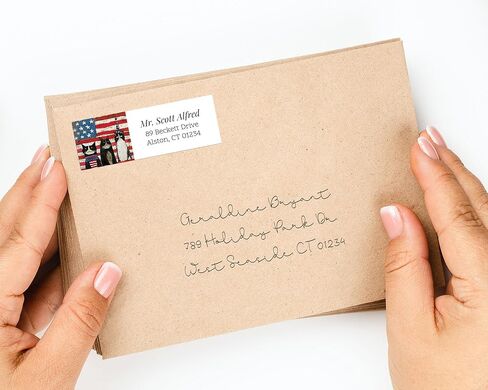 Mr. Scott Alfred
89 Beckett Drive
Alston, CT 01234
Geraldine Bryant
789 Holiday Park Dr
West Seaside CT 01234